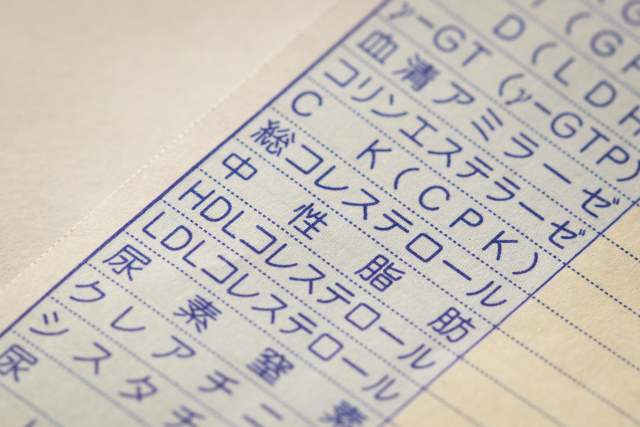 γ-GT(γ-GTP)
血清アミラーゼ
コリンエステラーゼ
CK(CPK)
総コレステロール
中性脂肪
HDLコレステロール
LDLコレステロール
尿素窒素
クレアチニ
シスタチ
尿